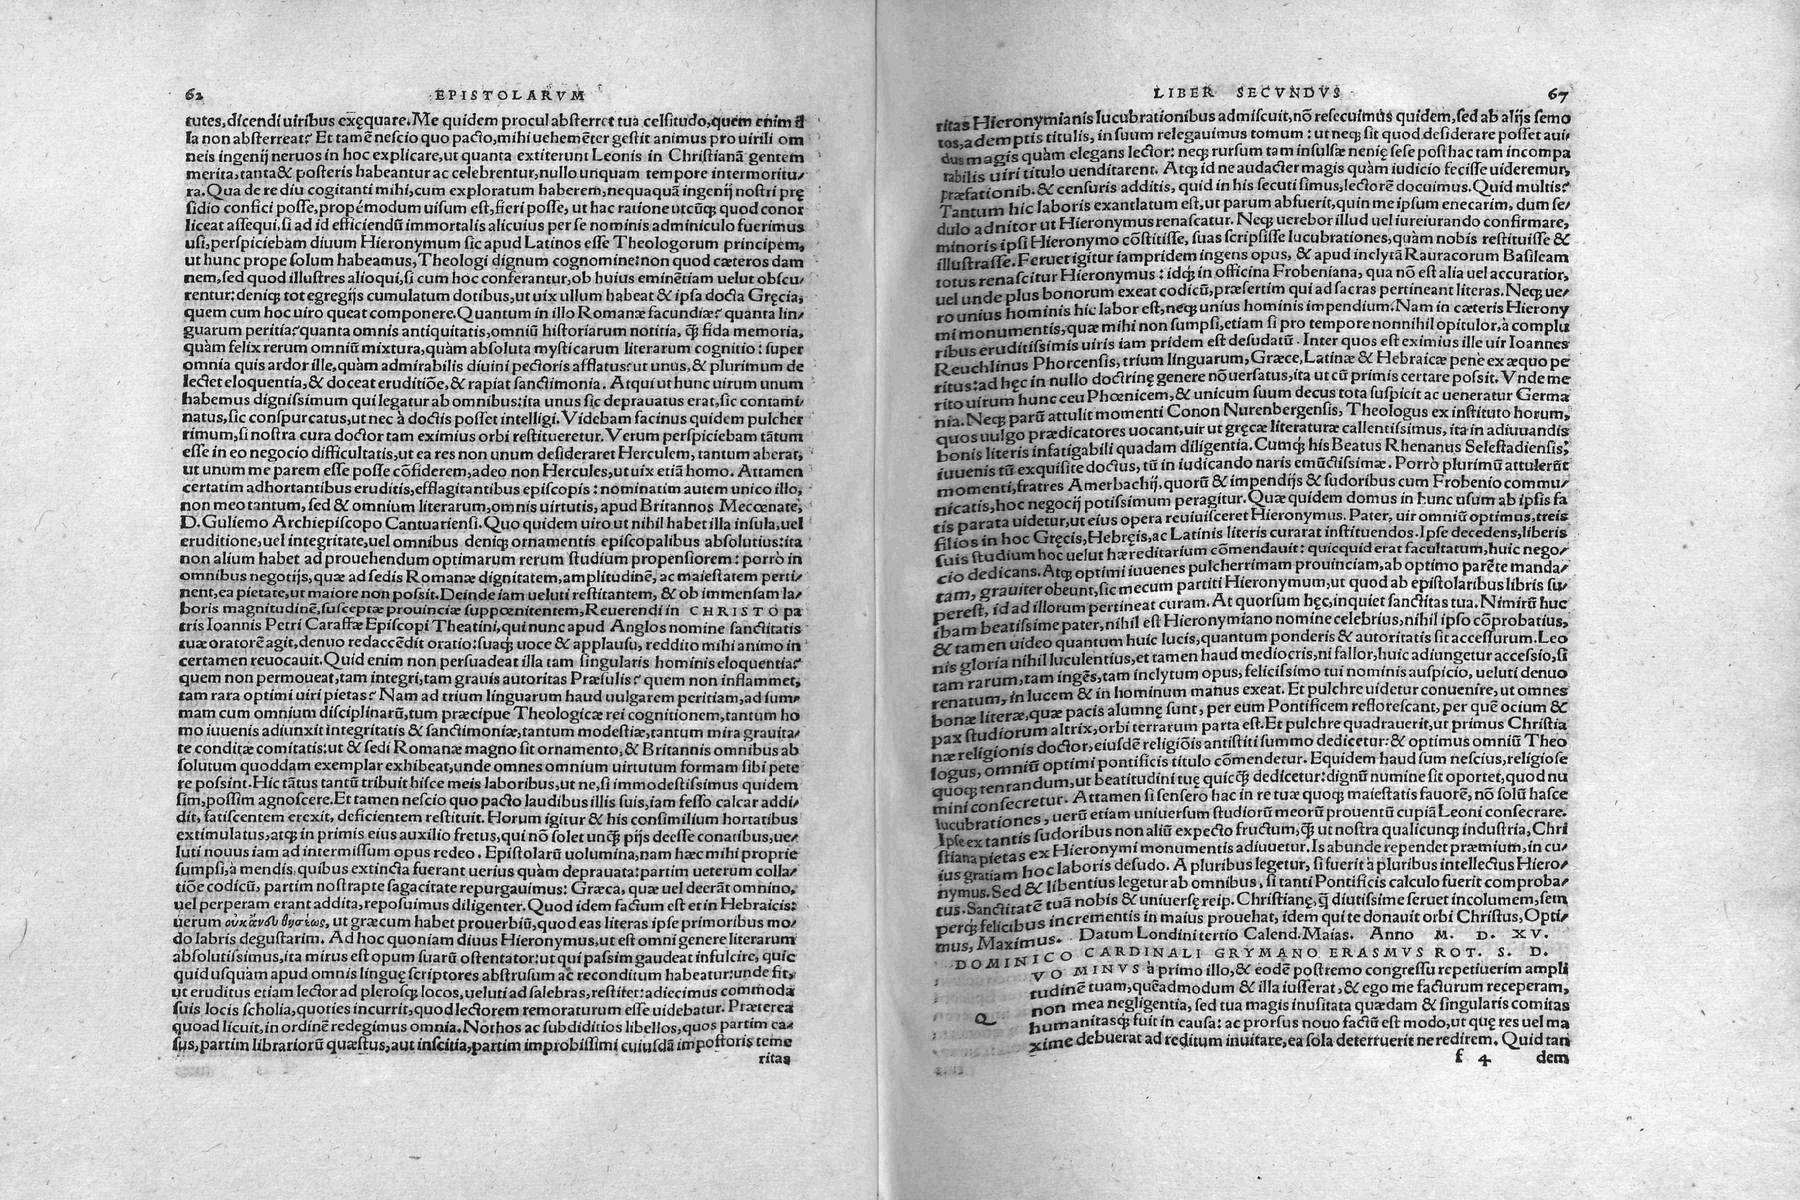 62 EPISTOLARVM
tutes, dicendi uiribus exęquare. Me quidem procul absterret tua celsitudo, quem enim il
la non absterreat? Et tamē nescio quo pacto, mihi uehemēter gestit animus pro uirili om
neis ingenij neruos in hoc explicare, ut quanta extiterunt Leonis in Christianā gentem
merita, tanta & posteris habeantur ac celebrentur, nullo unquam tempore intermoritu/
ra. Qua de re diu cogitanti mihi, cum exploratum haberem, nequaquā ingenij nostri prę
sidio confici posse, propémodum uisum est, fieri posse, ut hac ratione utcūq; quod conor
liceat assequi, si ad id efficiendū immortalis alicuius per se nominis adminiculo fuerimus
usi, perspiciebam diuum Hieronymum sic apud Latinos esse Theologorum principem,
ut hunc prope solum habeamus, Theologi dignum cognomine: non quod cæteros dam
nem, sed quod illustres alioqui, si cum hoc conferantur, ob huius eminētiam uelut obscu/
rentur: deniq; tot egregijs cumulatum dotibus, ut uix ullum habeat & ipsa docta Gręcia,
quem cum hoc uiro queat componere. Quantum in illo Romanæ facundiæ? quanta lin/
guarum peritia? quanta omnis antiquitatis, omniū historiarum notitia, q̄; fida memoria,
quàm felix rerum omniū mixtura, quàm absoluta mysticarum literarum cognitio: super
omnia quis ardor ille, quàm admirabilis diuini pectoris afflatus: ut unus, & plurimum de
lectet eloquentia, & doceat eruditiōe, & rapiat sanctimonia. Atqui ut hunc uirum unum
habemus dignissimum qui legatur ab omnibus: ita unus sic deprauatus erat, sic contami/
natus, sic conspurcatus, ut nec à doctis posset intelligi. Videbam facinus quidem pulcher
rimum, si nostra cura doctor tam eximius orbi restitueretur. Verum perspiciebam tātum
esse in eo negocio difficultatis, ut ea res non unum desideraret Herculem, tantum aberat,
ut unum me parem esse posse cōfiderem, adeo non Hercules, ut uix etiā homo. Attamen
certatim adhortantibus eruditis, efflagitantibus episcopis: nominatim autem unico illo,
non meo tantum, sed & omnium literarum, omnis uirtutis, apud Britannos Mecœnate,
D. Guliemo Archiepiscopo Cantuariensi. Quo quidem uiro ut nihil habet illa insula, uel
eruditione, uel integritate, uel omnibus deniq; ornamentis episcopalibus absolutius: ita
non alium habet ad prouehendum optimarum rerum studium propensiorem: porrò in
omnibus negotijs, quæ ad sedis Romanæ dignitatem, amplitudinē, ac maiestatem perti/
nent, ea pietate, ut maiore non possit. Deinde iam ueluti restitantem, & ob immensam la/
boris magnitudinē, susceptæ prouinciæ suppœnitentem, Reuerendi in CHRISTO pa
tris Ioannis Petri Caraffæ Episcopi Theatini, qui nunc apud Anglos nomine sanctitatis
tuæ oratorē agit, denuo redaccēdit oratio: suaq; uoce & applausu, reddito mihi animo in
certamen reuocauit. Quid enim non persuadeat illa tam singularis hominis eloquentia?
quem non permoueat, tam integri, tam grauis autoritas Præsulis? quem non inflammet,
tam rara optimi uiri pietas? Nam ad trium linguarum haud uulgarem peritiam, ad sum/
mam cum omnium disciplinarū, tum præcipue Theologicæ rei cognitionem, tantum ho
mo iuuenis adiunxit integritatis & sanctimoniæ, tantum modestiæ, tantum mira grauita/
te conditæ comitatis: ut & sedi Romanæ magno sit ornamento, & Britannis omnibus ab
solutum quoddam exemplar exhibeat, unde omnes omnium uirtutum formam sibi pete
re possint. Hic tātus tantū tribuit hisce meis laboribus, ut ne, si immodestissimus quidem
sim, possim agnoscere. Et tamen nescio quo pacto laudibus illis suis, iam fesso calcar addi/
dit, fatiscentem erexit, deficientem restituit. Horum igitur & his consimilium hortatibus
extimulatus, atq; in primis eius auxilio fretus, qui nō solet unq̄; pijs deesse conatibus, ue/
luti nouus iam ad intermissum opus redeo. Epistolarū uolumina, nam hæc mihi proprie
sumpsi, à mendis, quibus extincta fuerant uerius quàm deprauata: partim ueterum colla/
tiōe codicū, partim nostrapte sagacitate repurgauimus: Græca, quæ uel deerāt omnino,
uel perperam erant addita, reposuimus diligenter. Quod idem factum est et in Hebraicis:
uerum οὐκ ἄνευ θησέως, ut græcum habet prouerbiū, quod eas literas ipse primoribus mo/
do labris degustarim. Ad hoc quoniam diuus Hieronymus, ut est omni genere literarum
absolutissimus, ita mirus est opum suarū ostentator: ut qui passim gaudeat infulcire, quic
quid usquàm apud omnis linguę scriptores abstrusum ac reconditum habeatur: unde fit,
ut eruditus etiam lector ad plerosq; locos, ueluti ad salebras, restitet: adiecimus commoda
suis locis scholia, quoties incurrit, quod lectorem remoraturum esse uidebatur. Præterea
quoad licuit, in ordinē redegimus omnia. Nothos ac subdiditios libellos, quos partim ca/
sus, partim librariorū quæstus, aut inscitia, partim improbissimi cuiusdā impostoris teme
ritas
LIBER SECVNDVS 67
ritas Hieronymianis lucubrationibus admiscuit, nō resecuimus quidem, sed ab alijs semo
tos, ademptis titulis, in suum relegauimus tomum: ut neq; sit quod desiderare posset aui/
dus magis quàm elegans lector: neq; rursum tam insulsæ nenię sese posthac tam incompa
rabilis uiri titulo uenditarent. Atq; id ne audacter magis quàm iudicio fecisse uideremur,
præfationib. & censuris additis, quid in his secuti simus, lectorē docuimus. Quid multis?
Tantum hic laboris exantlatum est, ut parum abfuerit, quin me ipsum enecarim, dum se/
dulo adnitor ut Hieronymus renascatur. Neq; uerebor illud uel iureiurando confirmare,
minoris ipsi Hieronymo cōstitisse, suas scripsisse lucubrationes, quàm nobis restituisse &
illustrasse. Feruet igitur iampridem ingens opus, & apud inclytā Rauracorum Basileam
totus renascitur Hieronymus: idq; in officina Frobeniana, qua nō est alia uel accuratior,
uel unde plus bonorum exeat codicū, præsertim qui ad sacras pertineant literas. Neq; ue/
ro unius hominis hic labor est, neq; unius hominis impendium. Nam in cæteris Hierony
mi monumentis, quæ mihi non sumpsi, etiam si pro tempore nonnihil opitulor, à complu
ribus eruditissimis uiris iam pridem est desudatū. Inter quos est eximius ille uir Ioannes
Reuchlinus Phorcensis, trium linguarum, Græce, Latinæ & Hebraicæ pene ex æquo pe
ritus: ad hęc in nullo doctrinę genere nō uersatus, ita ut cū primis certare possit. Vnde me
rito uirum hunc ceu Phœnicem, & unicum suum decus tota suspicit ac ueneratur Germa
nia. Neq; parū attulit momenti Conon Nurenbergensis, Theologus ex instituto horum,
quos uulgo prædicatores uocant, uir ut gręcæ literaturæ callentissimus, ita in adiuuandis
bonis literis infatigabili quadam diligentia. Cumq; his Beatus Rhenanus Selestadiensis,
iuuenis tū exquisite doctus, tū in iudicando naris emūctissimæ. Porrò plurimū attulerūt
momenti, fratres Amerbachij, quorū & impendijs & sudoribus cum Frobenio commu/
nicatis, hoc negocij potissimum peragitur. Quæ quidem domus in hunc usum ab ipsis fa
tis parata uidetur, ut eius opera reuiuisceret Hieronymus. Pater, uir omniū optimus, treis
filios in hoc Gręcis, Hebręis, ac Latinis literis curarat instituendos. Ipse decedens, liberis
suis studium hoc uelut hæreditarium cōmendauit: quicquid erat facultatum, huic nego/
cio dedicans. Atq; optimi iuuenes pulcherrimam prouinciam, ab optimo parēte manda/
tam, grauiter obeunt, sic mecum partiti Hieronymum, ut quod ab epistolaribus libris su/
perest, id ad illorum pertineat curam. At quorsum hęc, inquiet sanctitas tua. Nimirū huc
ibam beatissime pater, nihil est Hieronymiano nomine celebrius, nihil ipso cōprobatius,
& tamen uideo quantum huic lucis, quantum ponderis & autoritatis sit accessurum. Leo
nis gloria nihil luculentius, et tamen haud mediocris, ni fallor, huic adiungetur accessio, si
tam rarum, tam ingēs, tam inclytum opus, felicissimo tui nominis auspicio, ueluti denuo
renatum, in lucem & in hominum manus exeat. Et pulchre uidetur conuenire, ut omnes
bonæ literæ, quæ pacis alumnę sunt, per eum Pontificem reflorescant, per quē ocium &
pax studiorum altrix, orbi terrarum parta est. Et pulchre quadrauerit, ut primus Christia
næ religionis doctor, eiusdē religiōis antistiti summo dedicetur: & optimus omniū Theo
logus, omniū optimi pontificis titulo cōmendetur. Equidem haud sum nescius, religiose
quoq; tentandum, ut beatitudini tuę quicq̄; dedicetur: dignū numine sit oportet, quod nu
mini consecretur. Attamen si sensero hac in re tuæ quoq; maiestatis fauorē, nō solū hasce
lucubrationes, uerū etiam uniuersum studiorū meorū prouentū cupiā Leoni consecrare.
Ipse ex tantis sudoribus non aliū expecto fructum, q̄; ut nostra qualicunq; industria, Chri
stiana pietas ex Hieronymi monumentis adiuuetur. Is abunde rependet præmium, in cu/
ius gratiam hoc laboris desudo. A pluribus legetur, si fuerit à pluribus intellectus Hiero/
nymus. Sed & libentius legetur ab omnibus, si tanti Pontificis calculo fuerit comproba/
tus. Sanctitatē tuā nobis & uniuersę reip. Christianę, q̄ diutissime seruet incolumem, sem
perq; felicibus incrementis in maius prouehat, idem qui te donauit orbi Christus, Opti/
mus, Maximus. Datum Londini tertio Calend. Maias. Anno M. D. XV.
DOMINICO CARDINALI GRYMANO ERASMVS ROT. S. D.
QVO MINVS à primo illo, & eodē postremo congressu repetiuerim ampli
tudinē tuam, quēadmodum & illa iusserat, & ego me facturum receperam,
non mea negligentia, sed tua magis inusitata quædam & singularis comitas
humanitasq; fuit in causa: ac prorsus nouo factū est modo, ut quę res uel ma
xime debuerat ad reditum inuitare, ea sola deterruerit ne redirem. Quid tan
f 4 dem